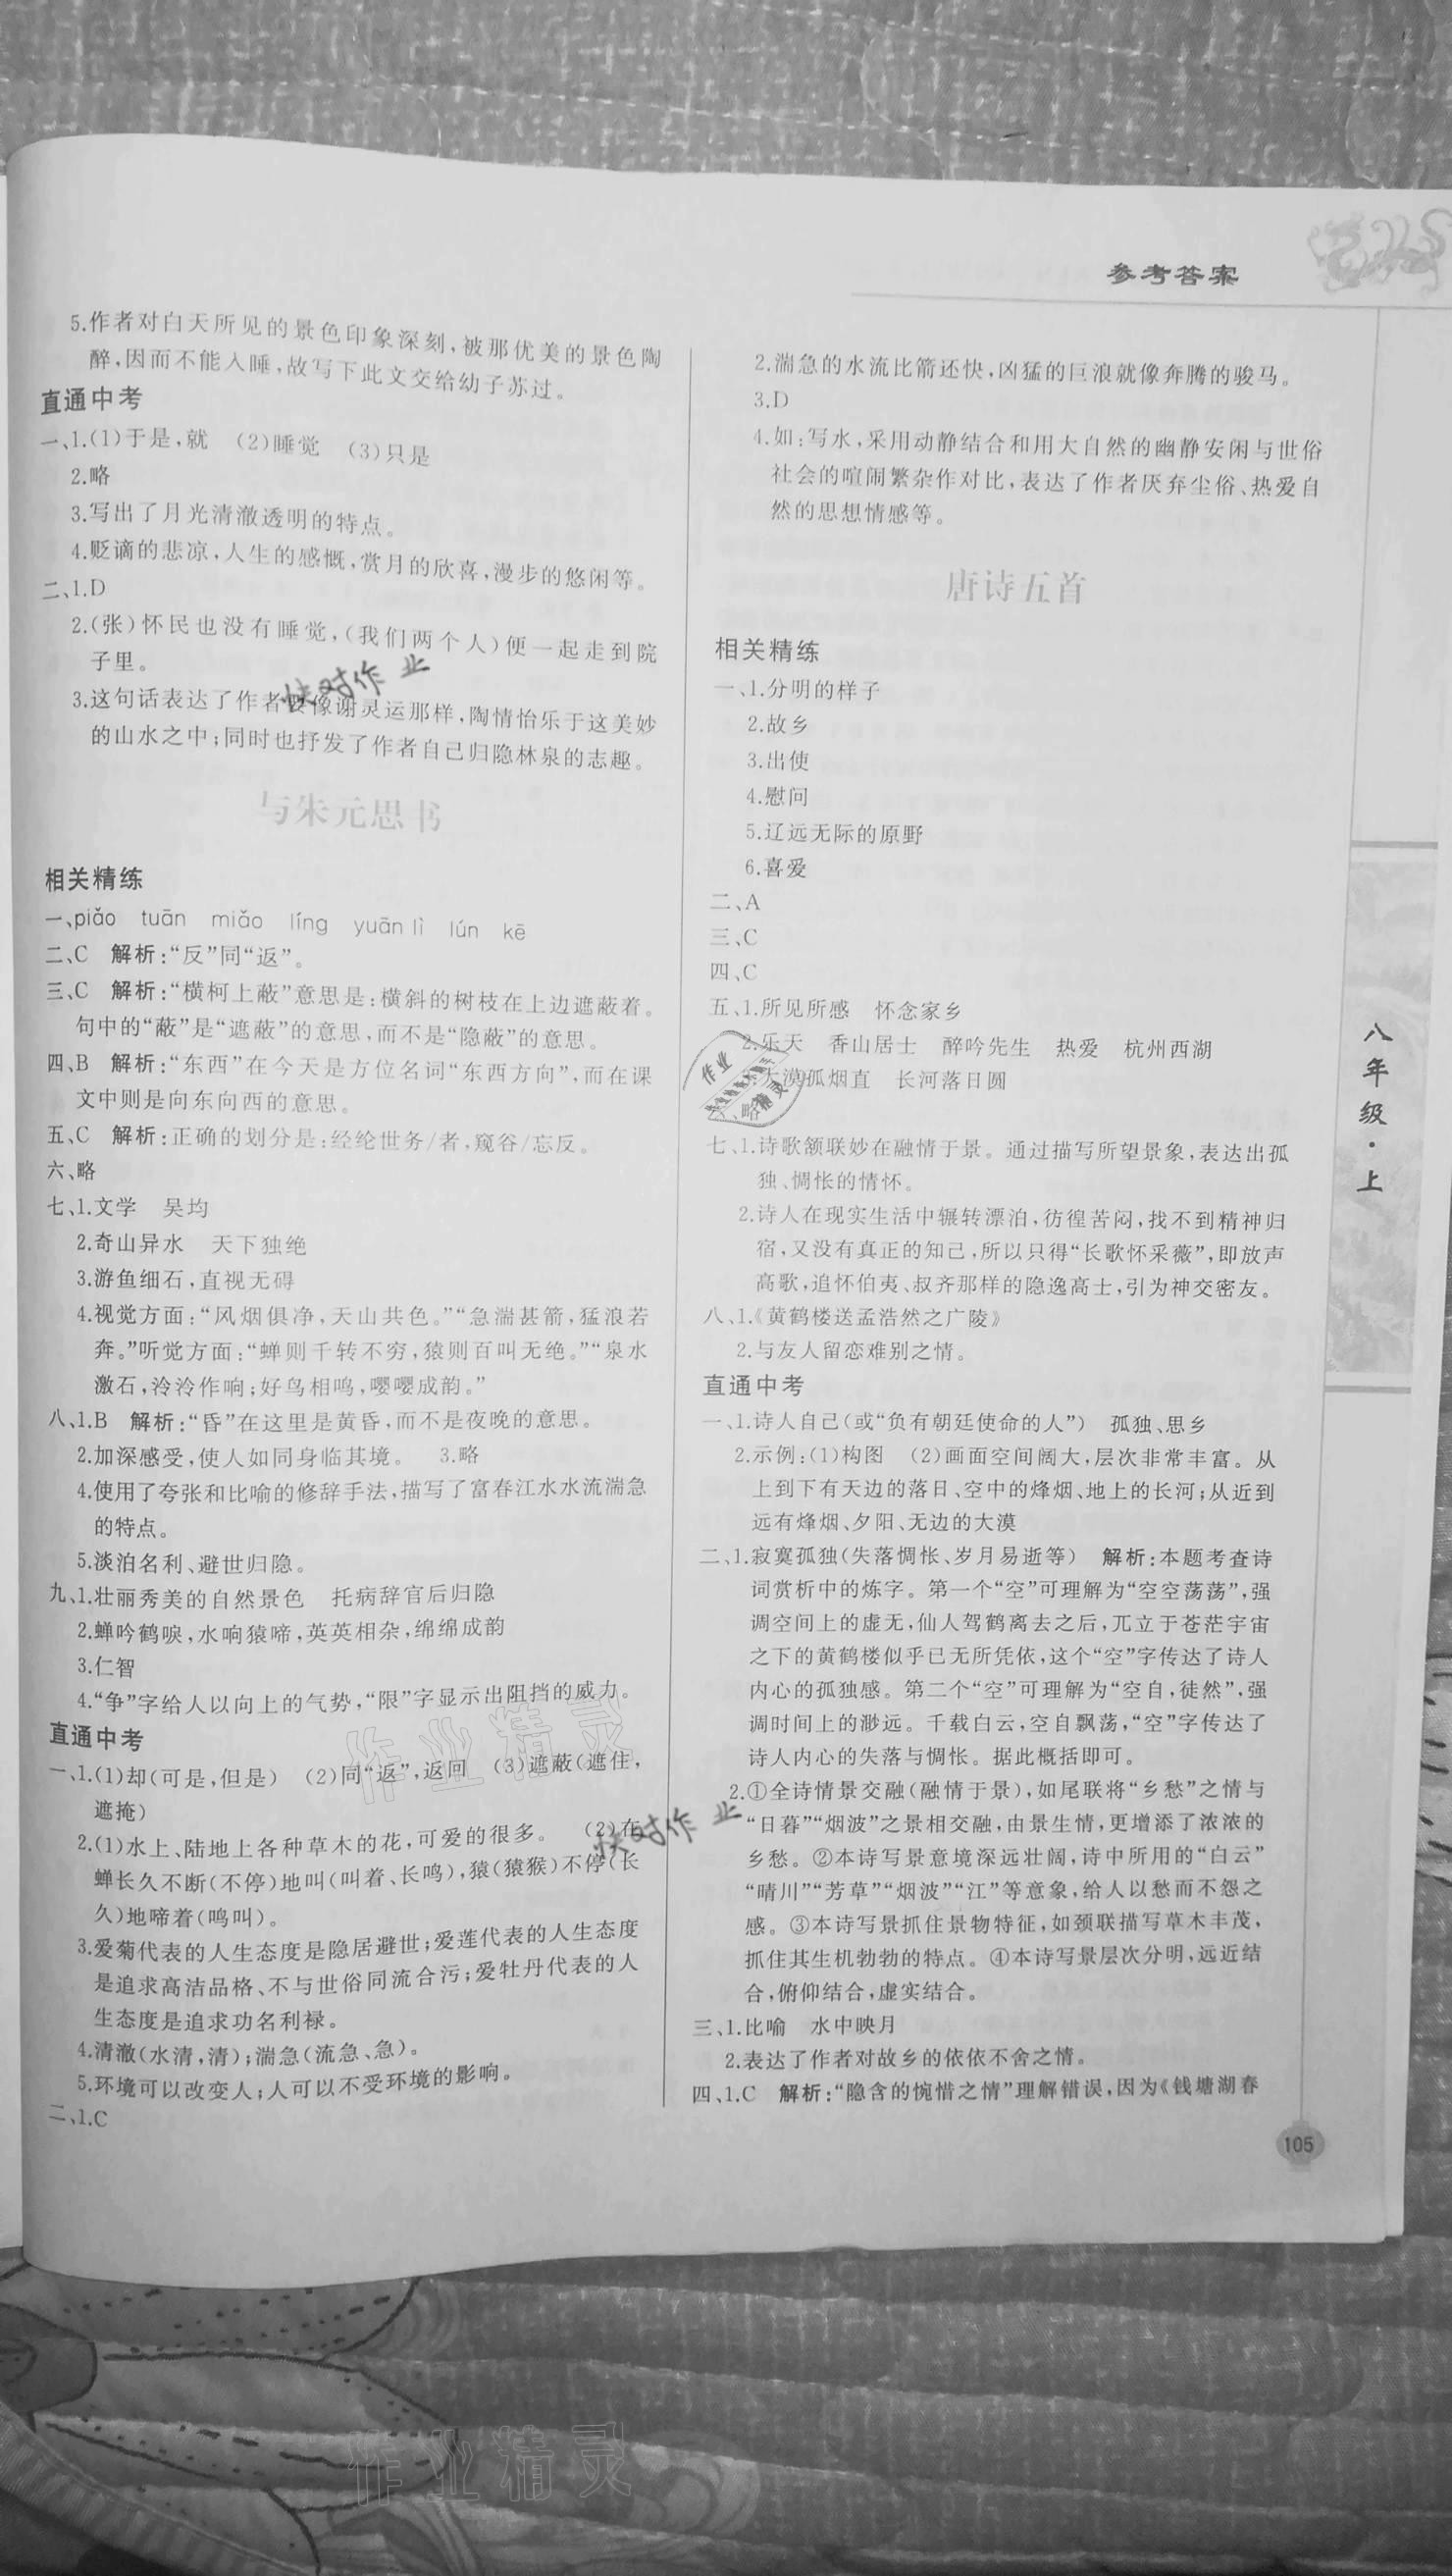 参考答案
5.作者对白天所见的景色印象深刻,被那优美的景色陶
醉,因而不能入睡,故写下此文交给幼子苏过。
直通中考
一、1.(1)于是,就 (2)睡觉 (3)只是
2.略
3.写出了月光清澈透明的特点。
4.贬谪的悲凉,人生的感慨,赏月的欣喜,漫步的悠闲等。
二、1.D
2.(张)怀民也没有睡觉,(我们两个人)便一起走到院
子里。
3.这句话表达了作者要像谢灵运那样,陶情怡乐于这美妙
的山水之中;同时也抒发了作者自己归隐林泉的志趣。
与朱元思书
相关精练
一、piǎo tuān miǎo líng yuān lì lún kē
二、C 解析:“反”同“返”。
三、C 解析:“横柯上蔽”意思是:横斜的树枝在上边遮蔽着。
句中的“蔽”是“遮蔽”的意思,而不是“隐蔽”的意思。
四、B 解析:“东西”在今天是方位名词“东西方向”,而在课
文中则是向东向西的意思。
五、C 解析:正确的划分是:经纶世务/者,窥谷/忘反。
六、略
七、1.文学 吴均
2.奇山异水 天下独绝
3.游鱼细石,直视无碍
4.视觉方面:“风烟俱净,天山共色。”“急湍甚箭,猛浪若
奔。”听觉方面:“蝉则千转不穷,猿则百叫无绝。”“泉水
激石,泠泠作响;好鸟相鸣,嘤嘤成韵。”
八、1.B 解析:“昏”在这里是黄昏,而不是夜晚的意思。
2.加深感受,使人如同身临其境。 3.略
4.使用了夸张和比喻的修辞手法,描写了富春江水水流湍急
的特点。
5.淡泊名利、避世归隐。
九、1.壮丽秀美的自然景色 托病辞官后归隐
2.蝉吟鹤唳,水响猿啼,英英相杂,绵绵成韵
3.仁智
4.“争”字给人以向上的气势,“限”字显示出阻挡的威力。
直通中考
一、1.(1)却(可是,但是) (2)同“返”,返回 (3)遮蔽(遮住,
遮掩)
2.(1)水上、陆地上各种草木的花,可爱的很多。 (2)在
蝉长久不断(不停)地叫(叫着、长鸣),猿(猿猴)不停(长
久)地啼着(鸣叫)。
3.爱菊代表的人生态度是隐居避世;爱莲代表的人生态度
是追求高洁品格、不与世俗同流合污;爱牡丹代表的人
生态度是追求功名利禄。
4.清澈(水清,清);湍急(流急、急)。
5.环境可以改变人;人可以不受环境的影响。
二、1.C
2.湍急的水流比箭还快,凶猛的巨浪就像奔腾的骏马。
3.D
4.如:写水,采用动静结合和用大自然的幽静安闲与世俗
社会的喧闹繁杂作对比,表达了作者厌弃尘俗、热爱自
然的思想情感等。
唐诗五首
相关精练
一、1.分明的样子
2.故乡
3.出使
4.慰问
5.辽远无际的原野
6.喜爱
二、A
三、C
四、C
五、1.所见所感 怀念家乡
2.乐天 香山居士 醉吟先生 热爱 杭州西湖
大漠孤烟直 长河落日圆
略
七、1.诗歌颔联妙在融情于景。通过描写所望景象,表达出孤
独、惆怅的情怀。
2.诗人在现实生活中辗转漂泊,彷徨苦闷,找不到精神归
宿,又没有真正的知己,所以只得“长歌怀采薇”,即放声
高歌,追怀伯夷、叔齐那样的隐逸高士,引为神交密友。
八、1.《黄鹤楼送孟浩然之广陵》
2.与友人留恋难别之情。
直通中考
一、1.诗人自己(或“负有朝廷使命的人”) 孤独、思乡
2.示例:(1)构图 (2)画面空间阔大,层次非常丰富。从
上到下有天边的落日、空中的烽烟、地上的长河;从近到
远有烽烟、夕阳、无边的大漠
二、1.寂寞孤独(失落惆怅、岁月易逝等) 解析:本题考查诗
词赏析中的炼字。第一个“空”可理解为“空空荡荡”,强
调空间上的虚无,仙人驾鹤离去之后,兀立于苍茫宇宙
之下的黄鹤楼似乎已无所凭依,这个“空”字传达了诗人
内心的孤独感。第二个“空”可理解为“空自,徒然”,强
调时间上的渺远。千载白云,空自飘荡,“空”字传达了
诗人内心的失落与惆怅。据此概括即可。
2.①全诗情景交融(融情于景),如尾联将“乡愁”之情与
“日暮”“烟波”之景相交融,由景生情,更增添了浓浓的
乡愁。②本诗写景意境深远壮阔,诗中所用的“白云”
“晴川”“芳草”“烟波”“江”等意象,给人以愁而不怨之
感。③本诗写景抓住景物特征,如颈联描写草木丰茂,
抓住其生机勃勃的特点。④本诗写景层次分明,远近结
合,俯仰结合,虚实结合。
三、1.比喻 水中映月
2.表达了作者对故乡的依依不舍之情。
四、1.C 解析:“隐含的惋惜之情”理解错误,因为《钱塘湖春
八年级·上
105
快对作业
作业精灵
快对作业
作业精灵
作业精灵